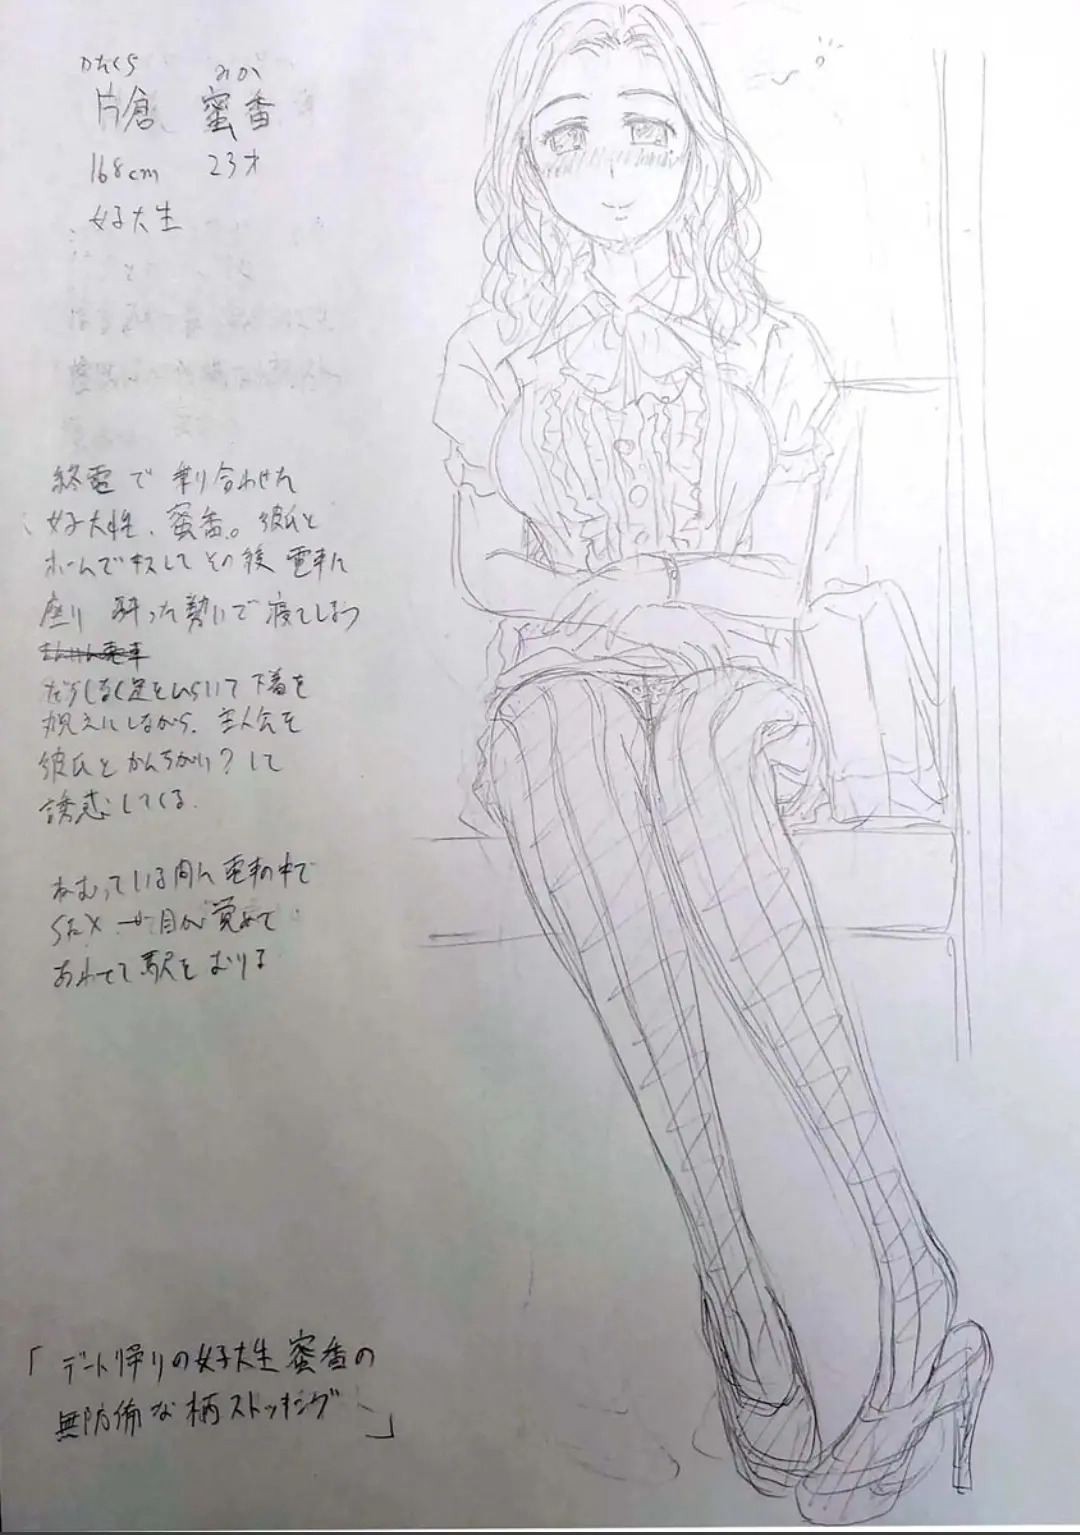 かたくら みか
片倉 蜜香
168cm 23才
女子大生
終電で乗り合わせた
女子大生、蜜香。彼氏と
ホームでキスしてその後電車に
座り 酔った勢いで寝てしまう
だらしなく足をひらいて下着を
丸見えにしながら、主人公を
彼氏とかんちがい?して
誘惑してくる.
ねむっている間に電車の中で
目が覚めて
あわてて駅をおりる
「デート帰りの女子大生蜜香の
無防備な柄ストッキング」